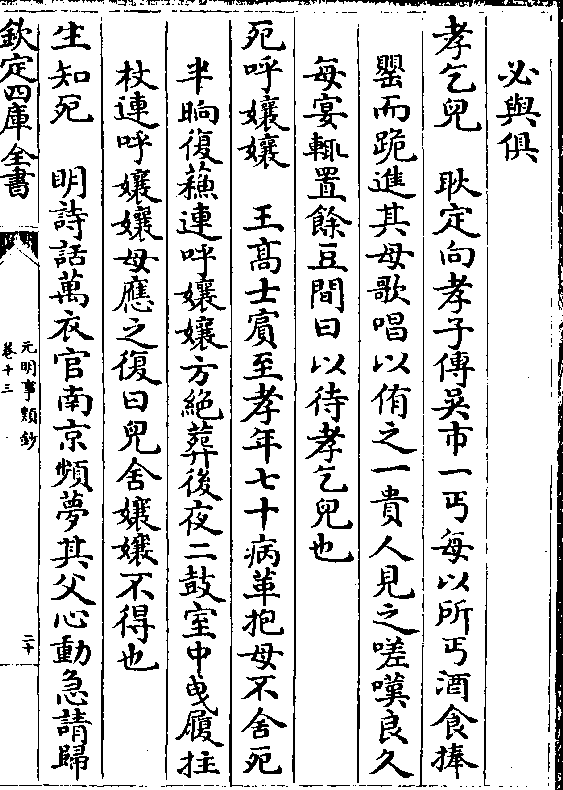 必與俱
孝乞兒　耿定向孝子傳吳市一丐每以所丐酒食捧
罌而跪進其母歌唱以侑之一貴人見之嗟嘆良久
每宴輒置餘豆間曰以待孝乞兒也
死呼孃孃　王髙士賔至孝年七十病革抱母不舍死
半晌復蘓連呼孃孃方絶葬後夜二鼓室中曵履拄
杖連呼孃孃母應之復曰兒舍孃孃不得也
生知死　明詩話萬衣官南京頻夢其父心動急請歸
欽定四庫全書
元明事類鈔
卷十三
二十